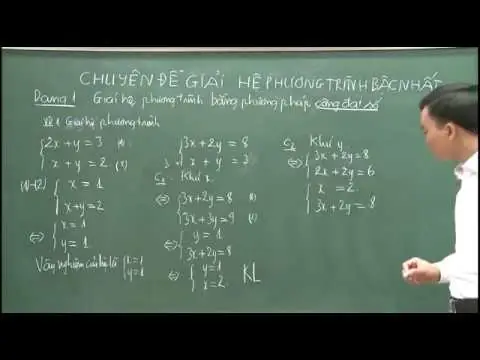 CHUYÊN ĐỀ GIẢI HỆ PHƯƠNG TRÌNH BẬC NHẤT
Dạng 1 Giải hệ phương trình bằng phương pháp cộng đại số
VD1 Giải hệ phương trình
2x + y = 3 (1)
x + y = 2 (2)
(1)-(2) x = 1
x + y = 2
⇔ x = 1
y = 1
Vậy nghiệm của hệ là x = 1
y = 1
3x + 2y = 8
3 x + y = 3
C1 Khử x
⇔ 3x + 2y = 8 (1)
3x + 3y = 9 (2)
⇔ y = 1
3x + 2y = 8
⇔ y = 1
x = 2 KL
C2 Khử y
⇔ 3x + 2y = 8
2x + 2y = 6
x = 2
3x + 2y = 8